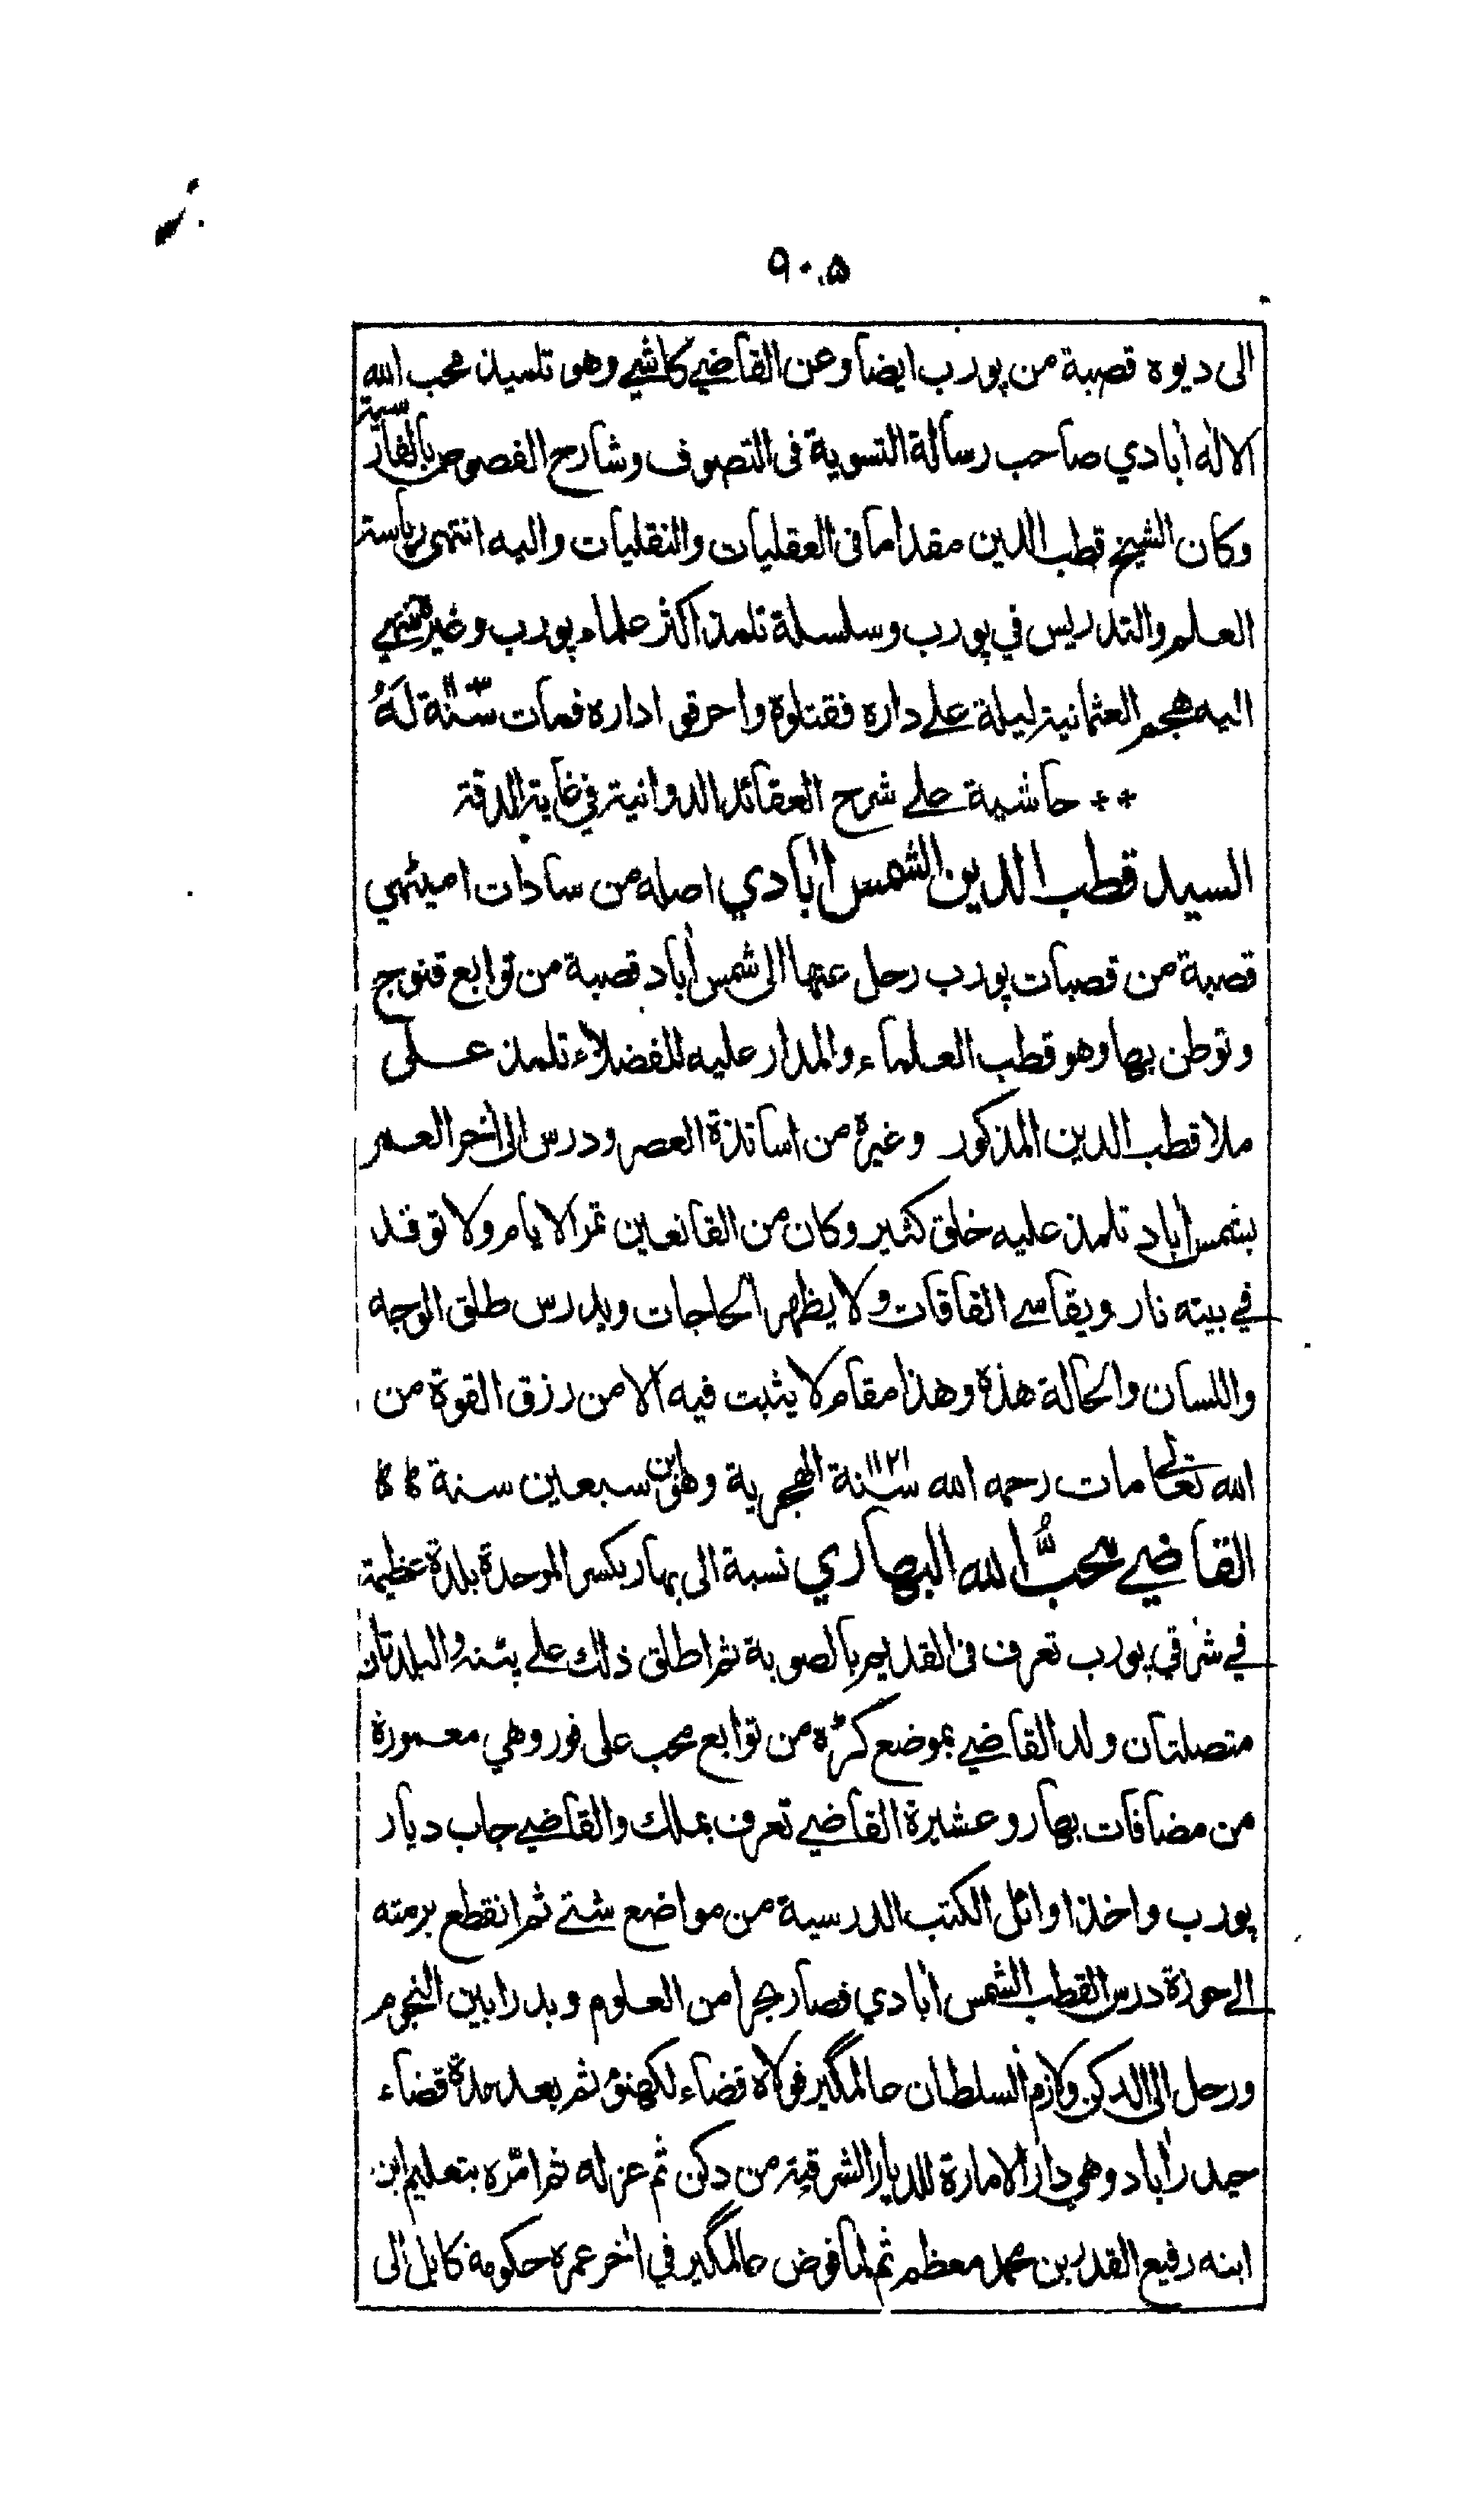 ٩٠٥
الى ديوه قصبة من پورب ايضا وعن القاضي كاشي وهو تلميذ محب الله
الاله ابادي صاحب رسالة التسوية فى التصوف وشارح الفصوص بالفارسية
وكان الشيخ قطب الدين مقداما فى العقليات والنقليات واليه انتهى رياسة
العلم والتدريس في پورب وسلسلة تلمذ اكثر علماء پورب وغيره تنتهي
اليه هجم العثمانية ليلة على داره فقتلوة واحرقوا داره فمات سنة له
** حاشية على شرح العقائد الدوانية في غاية الدقة
السيد قطب الدين الشمس ابادي اصله من سادات اميٹهي
قصبة من قصبات پورب رحل عنها الى شمس اباد قصبة من توابع قنوج
وتوطن بها وهو قطب العلماء والمدار عليه للفضلاء تلمذ على
ملا قطب الدين المذكور وغيره من اساتذة العصر ودرس الى اخر العمر
بشمس اباد تلمذ عليه خلق كثير وكان من القانعين تمر الايام ولا توقد
في بيته نار ويقاسي الفاقات ولا يظهر الحاجات ويدرس طلق الوجه
واللسان والحالة هذه وهذا مقام لا يثبت فيه الا من رزق القوة من
الله تعالى مات رحمه الله سنة ١١٢١ الهجرية وهو ابن سبعين سنة
القاضي محبّ الله البهاري نسبة الى بهار بكسر الموحدة بلدة عظيمة
في شرقي پورب تعرف فى القديم بالصوبة ثم اطلق ذلك على پٹنه والبلدتان
متصلتان ولد القاضي بموضع كڑه من توابع محب على فور وهي معمورة
من مضافات بهار وعشيرة القاضي تعرف بملك والقاضي جاب ديار
پورب واخذ اوائل الكتب الدرسية من مواضع شتى ثم انقطع برمته
الى حوزة درس القطب الشمس ابادي فصار بحرا من العلوم وبدرا بين النجوم
ورحل الى الدكن ولازم السلطان عالمگير فولاه قضاء لكهنؤ ثم بعد مدة قضاء
حيدراباد وهي دار الامارة للديار الشرقية من دكن ثم عزله ثم امره بتعليم ابن
ابنه رفيع القدر بن محمد معظم ثم لما فوض عالمگير في اخر عمره حكومة كابل الى